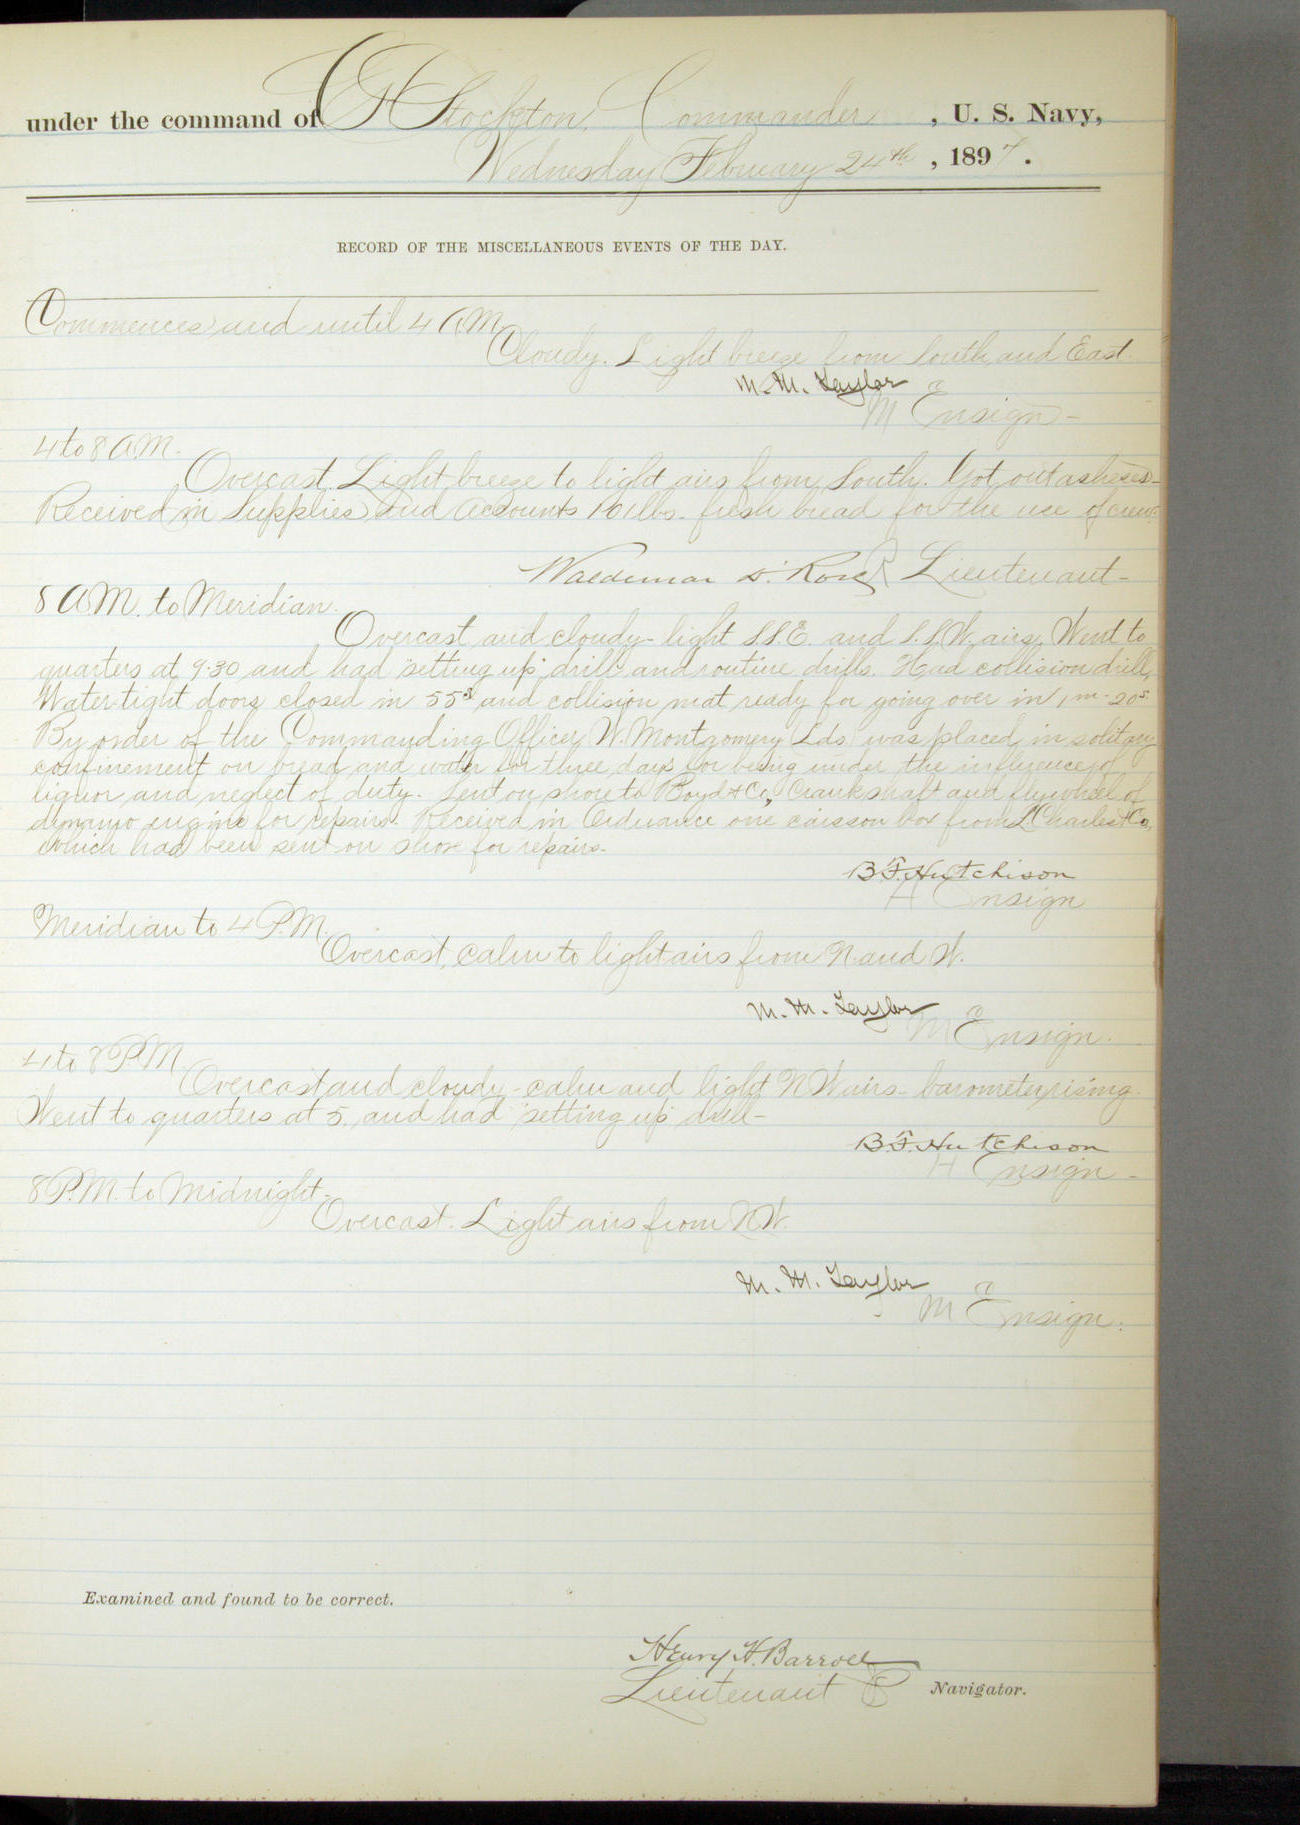 under the command of C H Stockton, Commander, U. S. Navy,
Wednesday February 24th, 1897.
RECORD OF THE MISCELLANEOUS EVENTS OF THE DAY.
Commences and until 4 A.M.
Cloudy. Light breeze from South and East.
M. M. Taylor
Ensign-
4 to 8 A.M.
Overcast. Light breeze to light airs from South. Got out ashes-
Received in Supplies and Accounts 101 lbs. fresh bread for the use of crew.
Waldemar D. Rose Lieutenant-
8 A.M. to Meridian.
Overcast and cloudy- light S.S.E. and S.S.W. airs. Went to
quarters at 9.30 and had "setting up" drill and routine drills. Had collision drill,
Water-tight doors closed in 55s and collision mat ready for going over in 1m-20s
By order of the Commanding Officer, W. Montgomery Lds was placed in solitary
confinement on bread and water for three days for being under the influence of
liquor and neglect of duty. Sent on shore to Boyd & Co., Crankshaft and flywheel of
dynamo engine for repairs. Received in Ordnance one caisson box from S. Charles & Co,
which had been sent on shore for repairs-
B. F. Hutchison
Ensign
Meridian to 4 P.M.
Overcast, calm to light airs from N. and W.
M. M. Taylor
Ensign.
4 to 8 P.M.
Overcast and cloudy- calm and light N W airs- barometer rising.
Went to quarters at 5, and had "setting up" drill-
B. F. Hutchison
Ensign-
8 P.M. to Midnight-
Overcast. Light airs from N W.
M. M. Taylor
Ensign.
Examined and found to be correct.
Henry H. Barroll
Lieutenant Navigator.